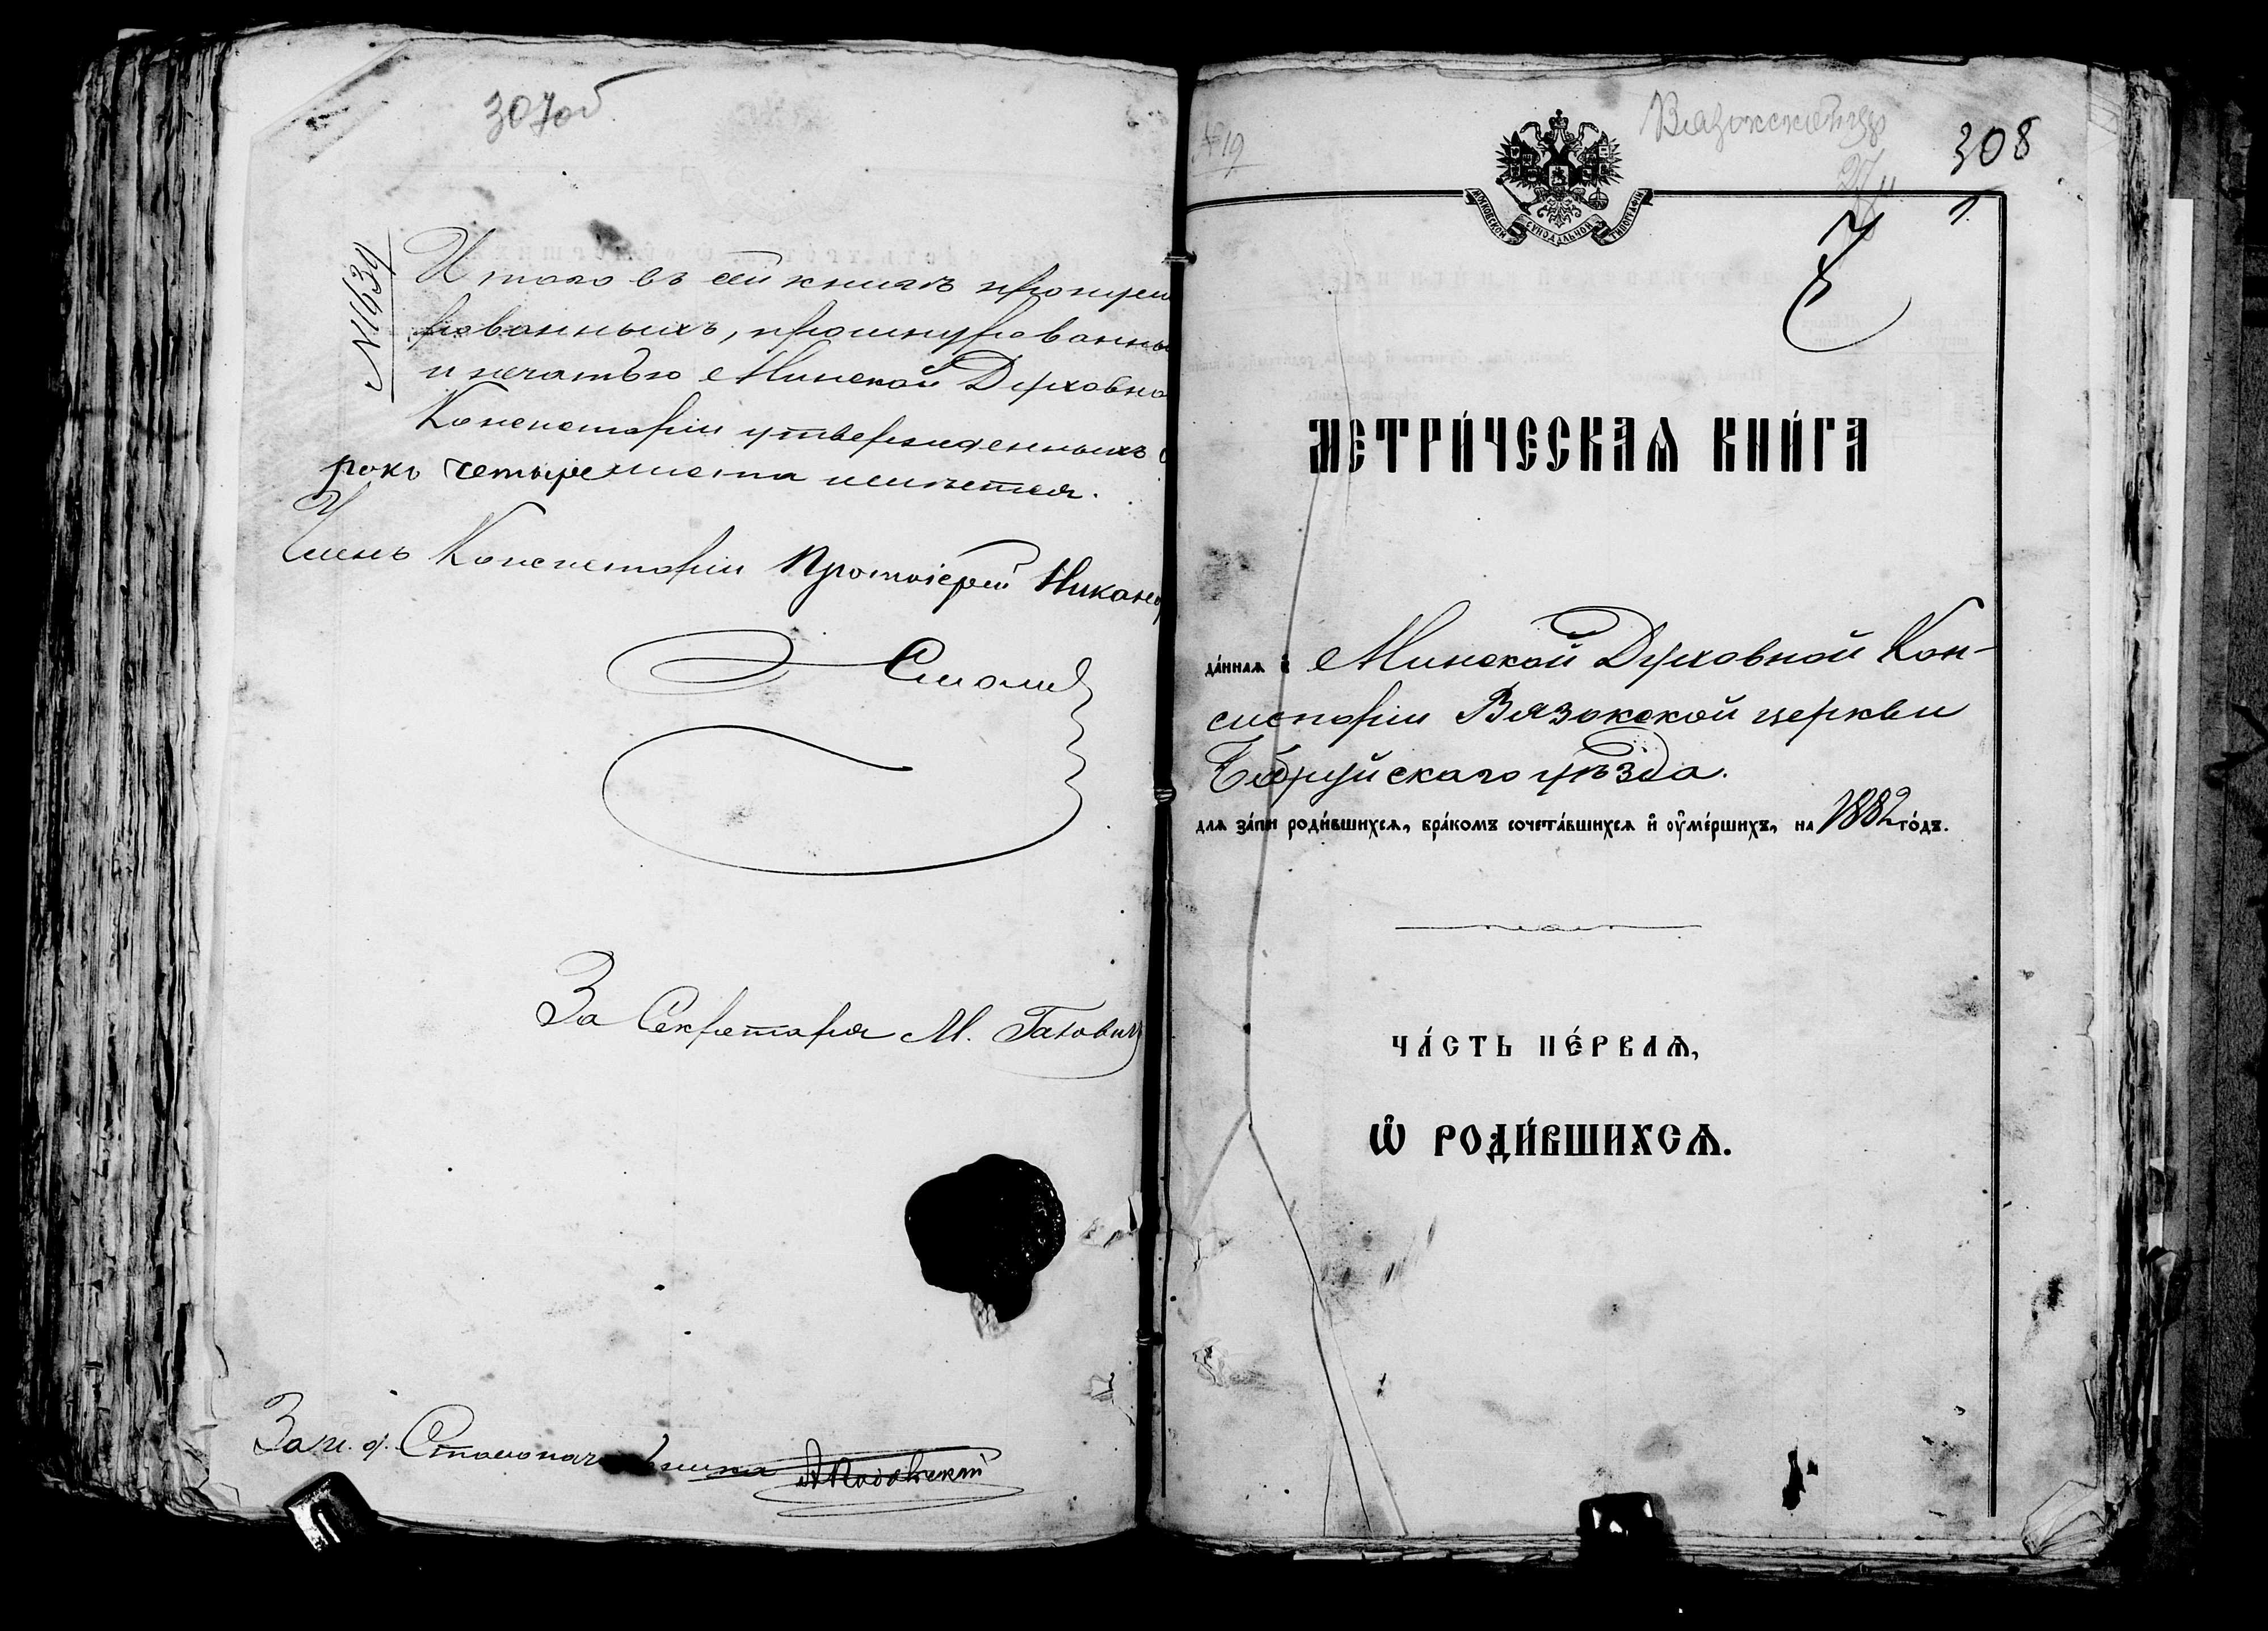 307об
№ 1639
Итого въ сей книгѣ пронуме
рованныхъ, прошнурованны
и печатью Минской Духовно
Консисторіи утвержденныхъ с
рокъ четыре листа имѣется.
Членъ Консисторіи Протоіерей Никанор
Смолич
За Секретаря М. Гахович
За и. д. Столонач ника
№ 19
Вязокской цер
308
1
МОСКОВСКОЙ СѴНОДАЛЬНОЙ ТИПОГРАФІИ
МЕТРИ́ЧЕСКАѦ КНИ́ГА
да́ннаѧ и҆ Минской Духовной Кон-
систоріи Вязокской церкви
Бобруйскаго уѣзда.
для за́пи роди́вшихсѧ, бра́комъ сочета́вшихсѧ и҆ ᲂу҆ме́ршихъ, на 1882 го́дъ.
ЧА́СТЬ ПЕ́РВАѦ,
Ѡ҆ РОДИ́ВШИХСѦ.